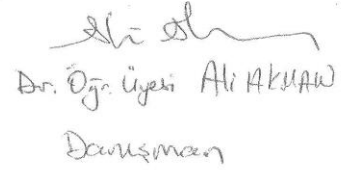 Dr. Öğr. Üyesi Ali AKMAN
Danışman